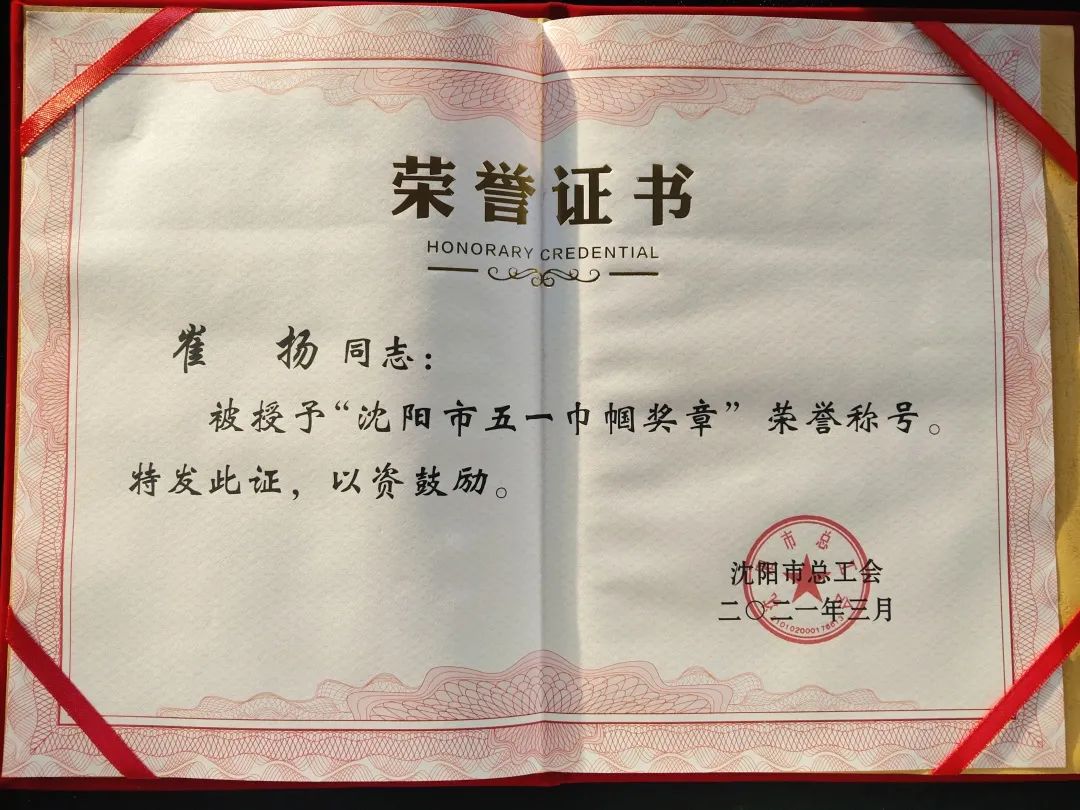 荣誉证书
HONORARY CREDENTIAL
崔 扬 同志：
被授予“沈阳市五一巾帼奖章”荣誉称号。
特发此证，以资鼓励。
沈阳市总工会
二〇二一年三月